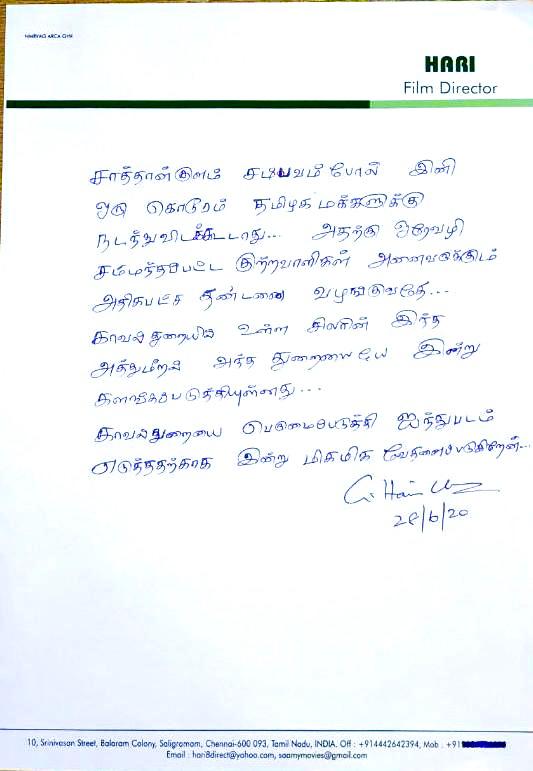 HARI
Film Director
சாத்தான்குளம் சம்பவம்போல் இனி
ஒரு கொடூரம் தமிழக மக்களுக்கு
நடந்துவிடக்கூடாது... அதற்கு ஒரேவழி
சம்மந்தப்பட்ட குற்றவாளிகள் அனைவருக்கும்
அதிகபட்ச தண்டனை வழங்குவதே...
காவல்துறையில் உள்ள சிலரின் இந்த
அத்துமீறல் அந்த துறையையே இன்று
களங்கப்படுத்தியுள்ளது...
காவல்துறையை பெருமைப்படுத்தி ஐந்துபடம்
எடுத்ததற்காக இன்று மிகமிக வேதனைப்படுகிறேன்...
28/6/20
10, Srinivasan Street, Balaram Colony, Saligramam, Chennai-600 093, Tamil Nadu, INDIA. Off : +914442642394, Mob : +91
Email : hari8direct@yahoo.com, saamymovies@gmail.com